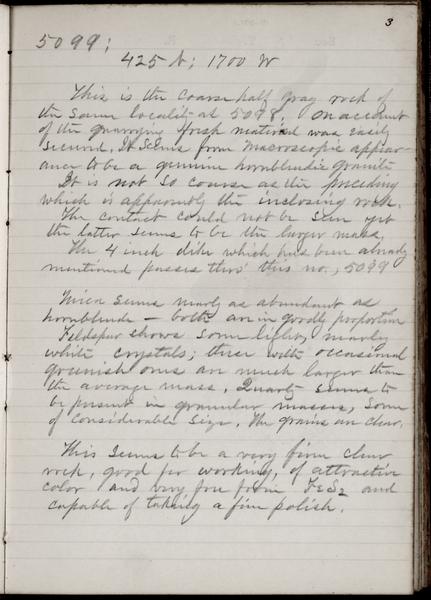 3
5099;
425 N; 1700 W
This is the coarse half gray rock of
the same locality at 5098. On account
of the quarrying fresh material was easily
secured. It seems from macroscopic appear-
ance to be a genuine hornblendic granite
It is not so coarse as the preceding
which is apparently the inclosing rock.
The contact could not be seen yet
the latter seems to be the larger mass.
The 4 inch dike which has been already
mentioned passes thro' this no., 5099
Mica seems nearly as abundant as
hornblende – both are in goodly proportion
Feldspar shows some light, nearly
white crystals; these with occasional
greenish ones are much larger than
the average mass. Quartz seems to
be present in granular masses, some
of considerable size. The grains are clear.
This seems to be a very firm clear
rock, good for working, of attractive
color and very free from FeS2 and
capable of taking a fine polish.